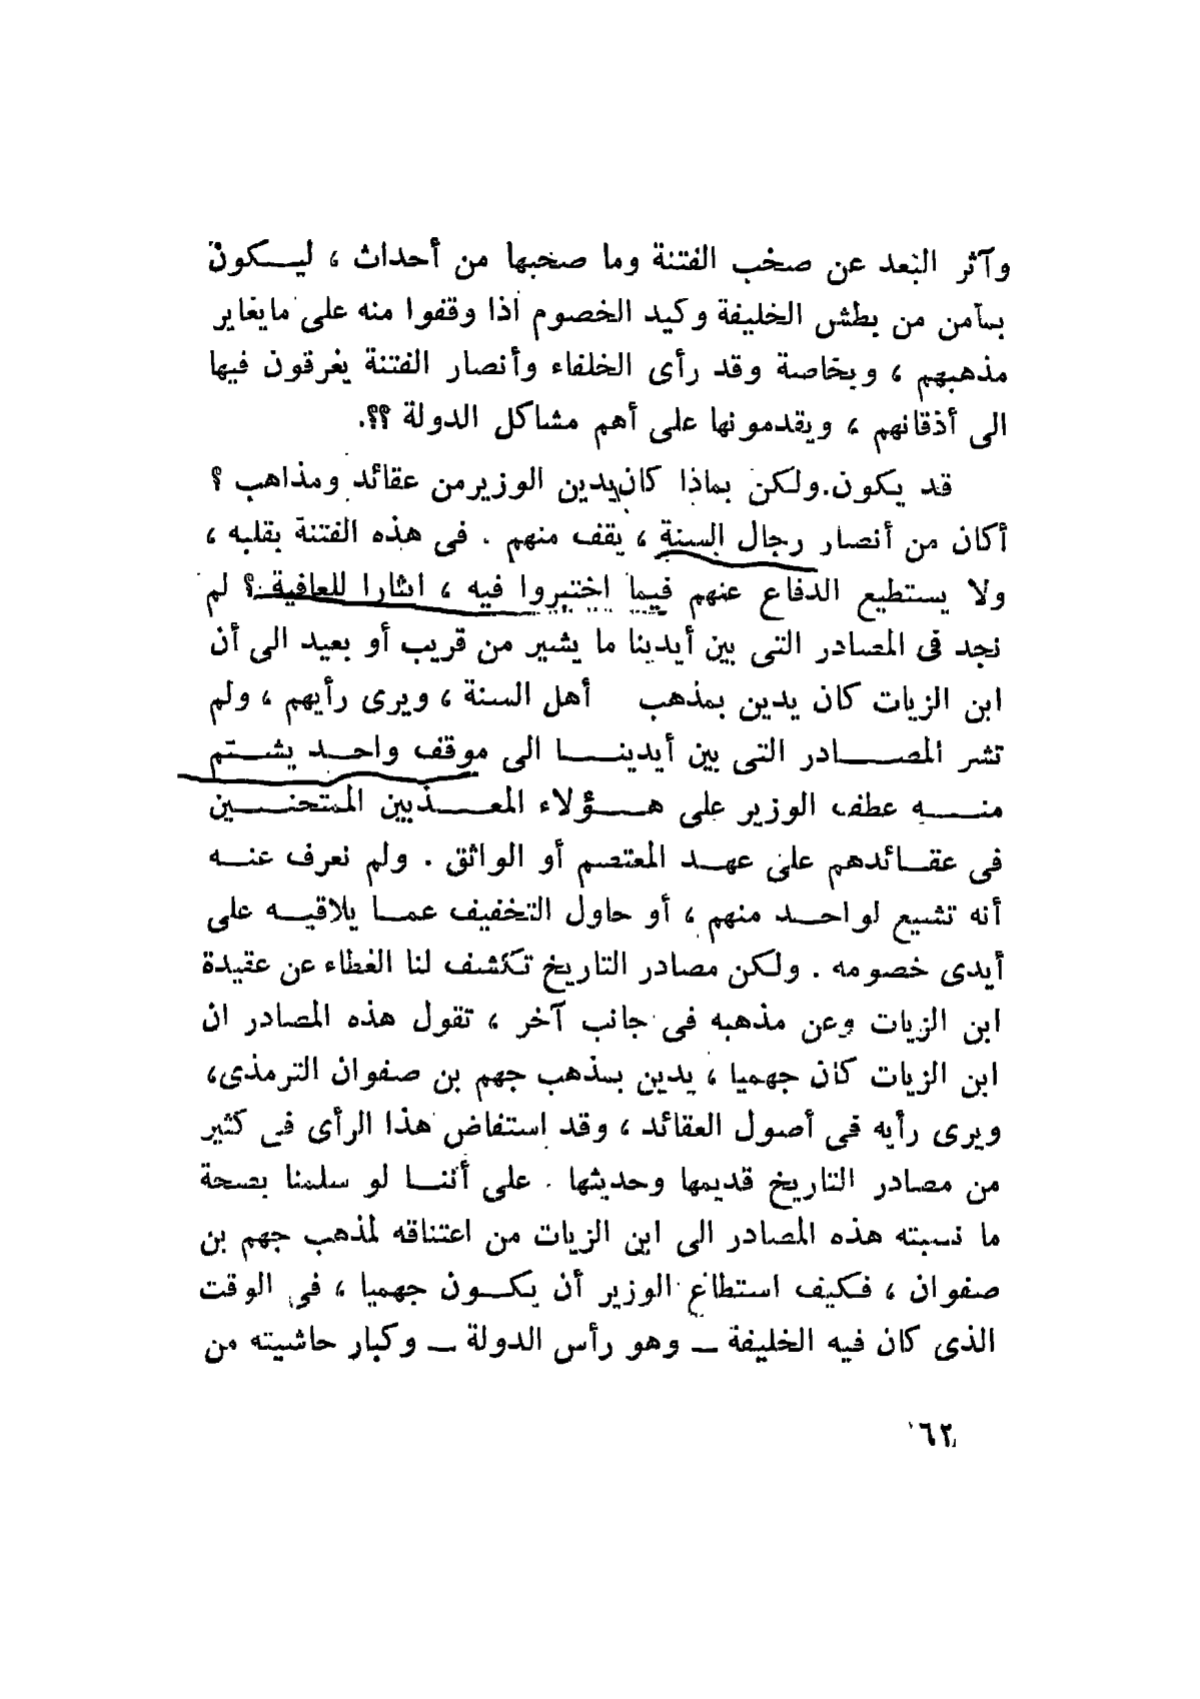 وآثر البعد عن صخب الفتنة وما صحبها من أحداث ، ليكون
بمأمن من بطش الخليفة وكيد الخصوم اذا وقفوا منه على ما يغاير
مذهبهم ، وبخاصة وقد رأى الخلفاء وأنصار الفتنة يغرقون فيها
الى أذقانهم ، ويقدمونها على أهم مشاكل الدولة ؟؟.
قد يكون. ولكن بماذا كان يدين الوزير من عقائد ومذاهب ؟
أكان من أنصار رجال السنة ، يقف منهم . فى هذه الفتنة بقلبه ،
ولا يستطيع الدفاع عنهم فيما اختبروا فيه ، ايثارا للعافية ؟ لم
نجد فى المصادر التى بين أيدينا ما يشير من قريب أو بعيد الى أن
ابن الزيات كان يدين بمذهب أهل السنة ، ويرى رأيهم ، ولم
تشر المصادر التى بين أيدينا الى موقف واحد يشتم
منه عطف الوزير على هؤلاء المعذبين الممتحنين
فى عقائدهم على عهد المعتصم أو الواثق . ولم نعرف عنه
أنه تشيع لواحد منهم ، أو حاول التخفيف عما يلاقيه على
أيدى خصومه . ولكن مصادر التاريخ تكشف لنا الغطاء عن عقيدة
ابن الزيات وعن مذهبه فى جانب آخر ، تقول هذه المصادر ان
ابن الزيات كان جهميا ، يدين بمذهب جهم بن صفوان الترمذى،
ويرى رأيه فى أصول العقائد ، وقد استفاض هذا الرأى فى كثير
من مصادر التاريخ قديمها وحديثها . على أننا لو سلمنا بصحة
ما نسبته هذه المصادر الى ابن الزيات من اعتناقه لمذهب جهم بن
صفوان ، فكيف استطاع الوزير أن يكون جهميا ، فى الوقت
الذى كان فيه الخليفة – وهو رأس الدولة – وكبار حاشيته من
٦٢